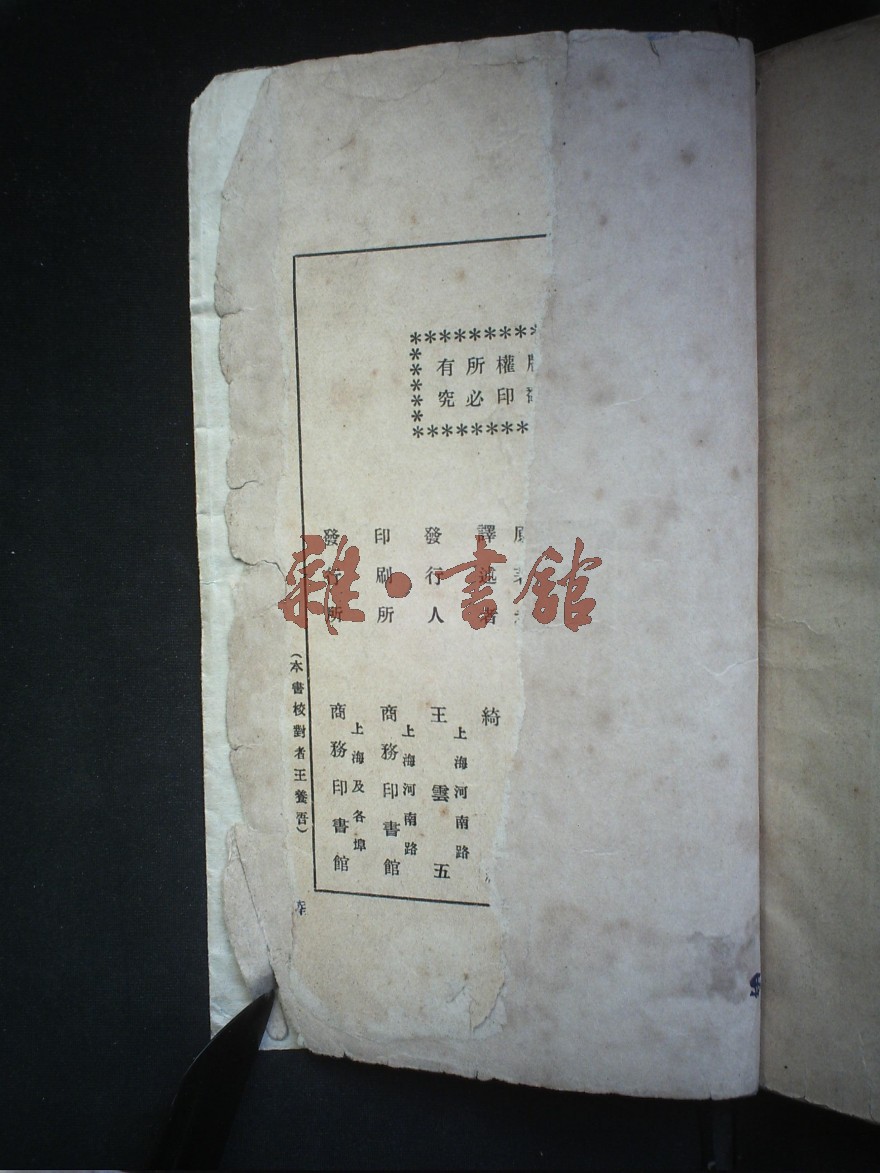 權印
所必
有究
譯述者
綺
發行人
上海河南路
王雲五
印刷所
上海河南路
商務印書館
發行所
上海及各埠
商務印書館
(本書校對者王養吾)
雜·書館